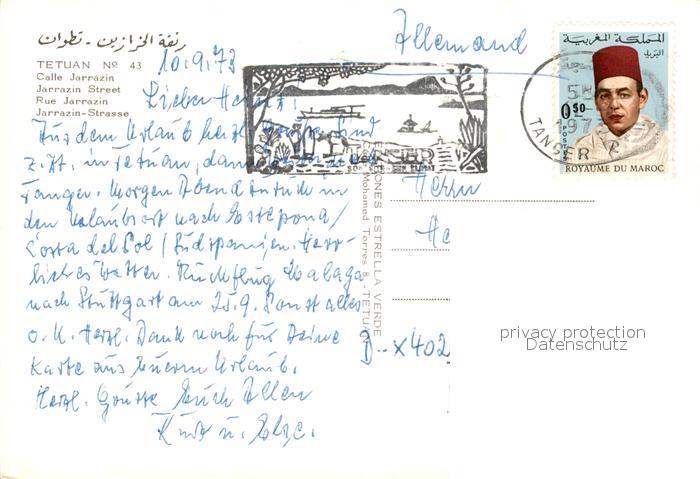 زنقة الخرازين - تطوان
TETUAN Nº 43
Calle Jarrazin
Jarrazin Street
Rue Jarrazin
Jarrazin-Strasse
10.9.73
Lieber
Aus dem Urlaub herzl. sind
z. Zt. in Tetuan, dann
Tanger. Morgen Abend zurück in
den Urlaubsort nach Estepona/
Costa del Sol / Südspanien. Herr-
liches Wetter. Rückflug Malaga
nach Stuttgart am 25.9. Sonst alles
o.K. Herzl. Dank noch für Deine
Karte aus Euerm Urlaub.
Herzl. Grüsse Euch Allen
Kurt u.
EDICIONES ESTRELLA VERDE
Mohamed Torres 8 - TETUAN
Allemand
Herrn
He
D-X402
المملكة المغربية
البريد
0,50
POSTES
ROYAUME DU MAROC
TANGER
197
privacy protection
Datenschutz